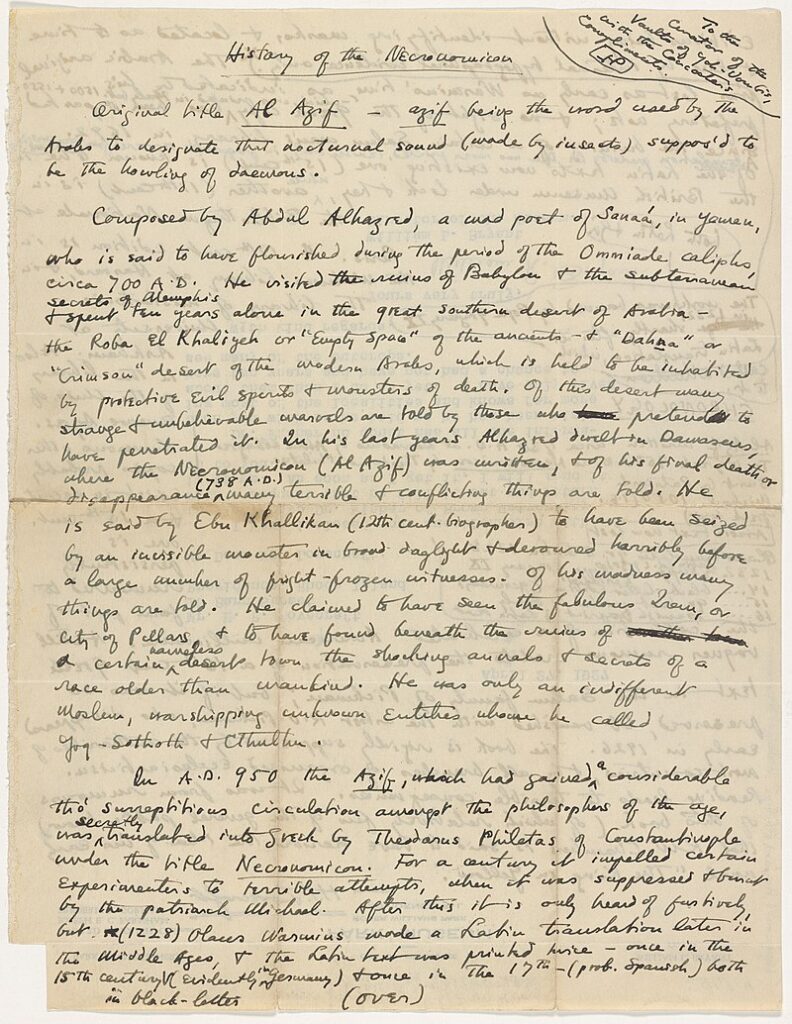 To the
Curator of the
Vaults of Yoh-Vombis,
with the Concocter's
Compliments.
History of the Necronomicon
Original title Al Azif — azif being the word used by the
Arabs to designate that nocturnal sound (made by insects) suppos'd to
be the howling of daemons.
Composed by Abdul Alhazred, a mad poet of Sanaá, in Yemen,
who is said to have flourished during the period of the Ommiade caliphs,
circa 700 A.D. He visited the ruins of Babylon & the subterranean
secrets of Memphis
& spent ten years alone in the great southern desert of Arabia —
the Roba El Khaliyeh or "Empty Space" of the ancients — & "Dahna" or
"Crimson" desert of the modern Arabs, which is held to be inhabited
by protective evil spirits & monsters of death. Of this desert many
strange & unbelievable marvels are told by those who pretend to
have penetrated it. In his last years Alhazred dwelt in Damascus,
where the Necronomicon (Al Azif) was written, & of his final death or
disappearance (738 A.D.) many terrible & conflicting things are told. He
is said by Ebn Khallikan (12th cent. biographer) to have been seized
by an invisible monster in broad daylight & devoured horribly before
a large number of fright-frozen witnesses. Of his madness many
things are told. He claimed to have seen the fabulous Irem, or
City of Pillars, & to have found beneath the ruins of
a certain nameless desert town the shocking annals & secrets of a
race older than mankind. He was only an indifferent
Moslem, worshipping unknown Entities whom he called
Yog-Sothoth & Cthulhu.
In A.D. 950 the Azif, which had gained a considerable
tho' surreptitious circulation amongst the philosophers of the age,
was secretly translated into Greek by Theodorus Philetas of Constantinople
under the title Necronomicon. For a century it impelled certain
experimenters to terrible attempts, when it was suppressed & burnt
by the patriarch Michael. After this it is only heard of furtively,
but (1228) Olaus Wormius made a Latin translation later in
the Middle Ages, & the Latin text was printed twice — once in the
15th century (evidently in Germany) & once in the 17th — (prob. Spanish) both
in black-letter (over)